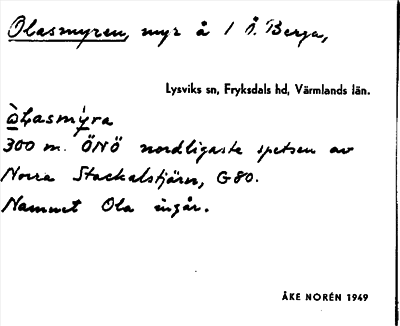 Olasmyren, myr å 1 Ö. Berga,
Lysviks sn, Fryksdals hd, Värmlands län.
òLasmýra
300 m. ÖNÖ nordligaste spetsen av
Norra Stackalstjärn, G80.
Namnet Ola ingår.
ÅKE NORÉN 1949